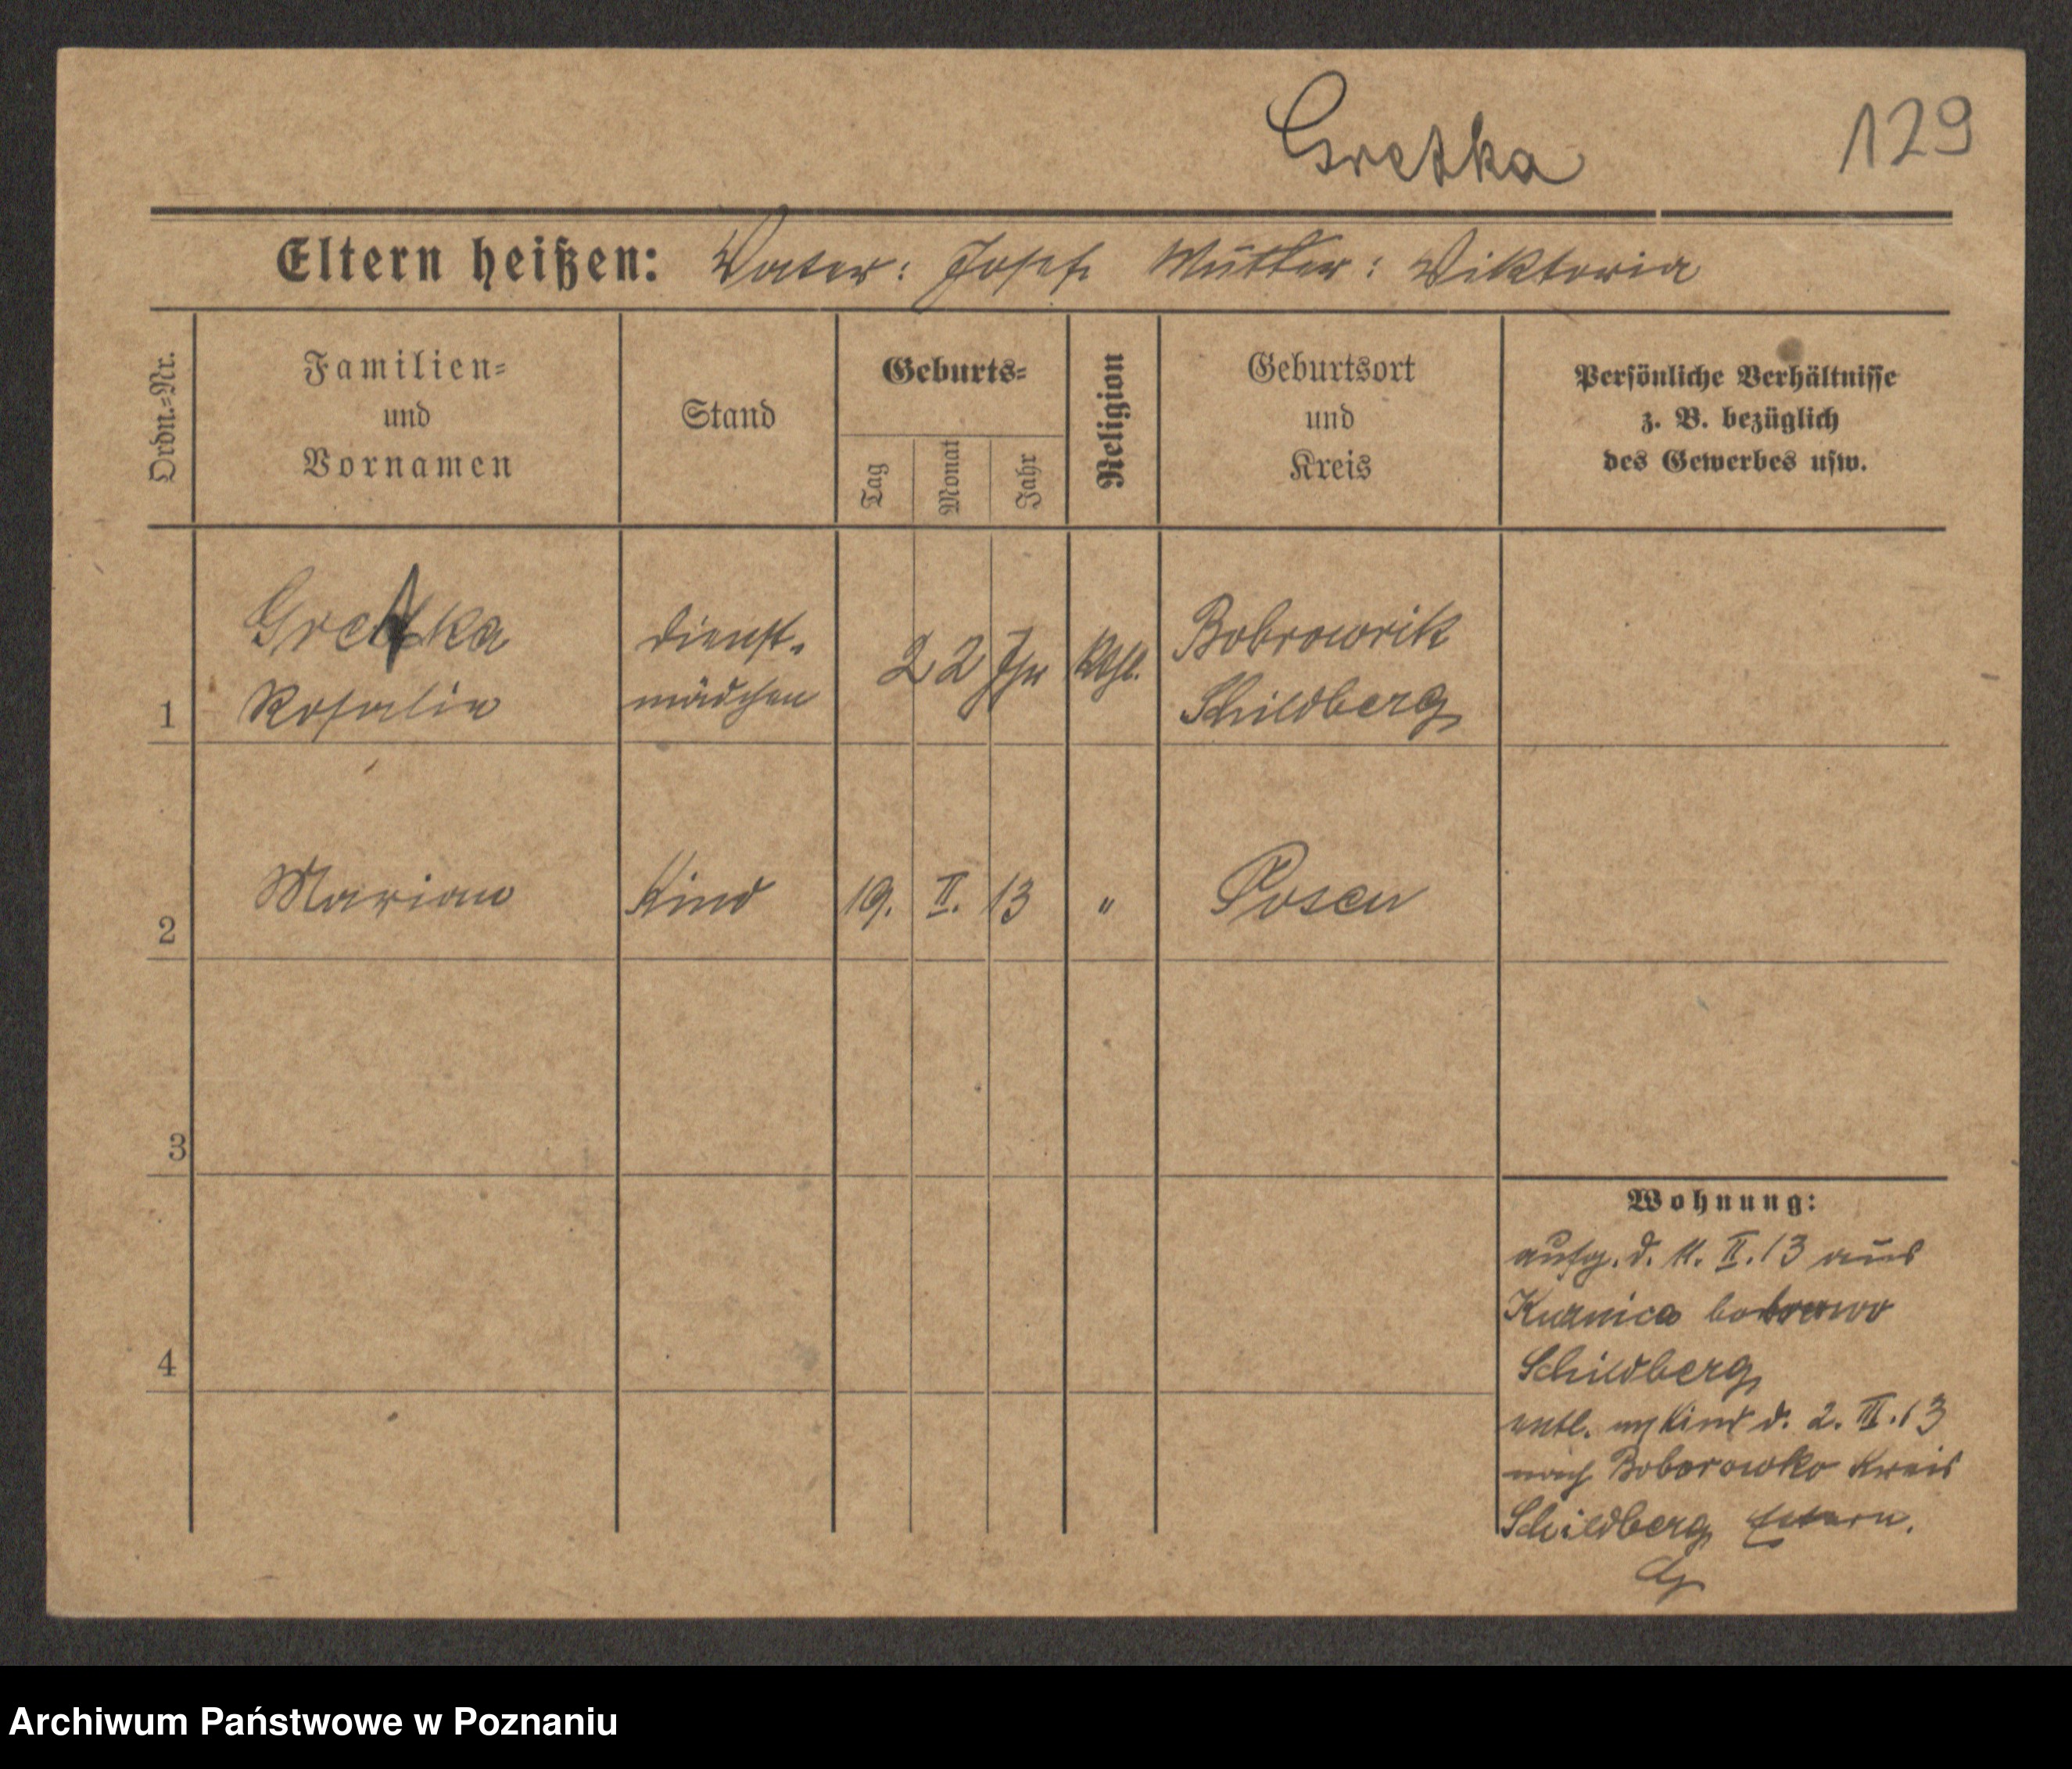 Gretka
129
Eltern heißen: Vater: Josef Mutter: Viktoria
Ordn.-Nr.
Familien-
und
Vornamen
Stand
Geburts-
Tag
Monat
Jahr
Religion
Geburtsort
und
Kreis
Persönliche Verhältnisse
z. B. bezüglich
des Gewerbes usw.
1
Gretka
Rosalie
Dienst-
mädchen
22 Jhr
Kthl.
Bobrowrik
Schildberg
2
Marian
Kind
19. II. 13
"
Posen
3
4
Wohnung:
aufg. d. 11. II. 13 aus
Kuznica
Schildberg
entl. Kind d. 2. III. 13
nach Boborowko Kreis
Schildberg Eltern.
Archiwum Państwowe w Poznaniu